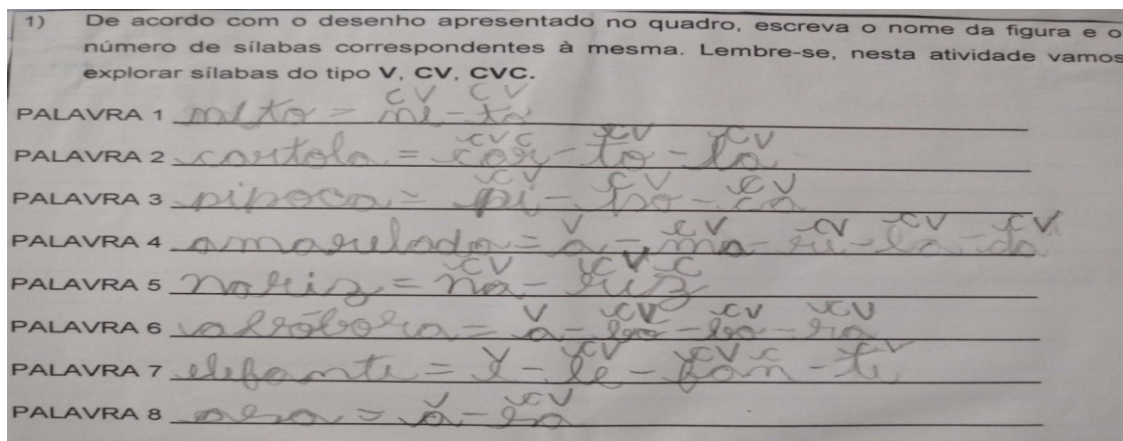 1) De acordo com o desenho apresentado no quadro, escreva o nome da figura e o
número de sílabas correspondentes à mesma. Lembre-se, nesta atividade vamos
explorar sílabas do tipo V, CV, CVC.
CV CV
PALAVRA 1 = - to
CVC CV CV
PALAVRA 2 cartola = car - to - la
CV CV CV
PALAVRA 3 pipoca = pi - po - ca
V CV CV CV CV
PALAVRA 4 amarelada = a - ma - re - la - da
CV CVC
PALAVRA 5 nariz = na - riz
V CV CV CV
PALAVRA 6 = a - bo - ra
V CV CVC CV
PALAVRA 7 elefante = e - le - fan - te
V CV
PALAVRA 8 asa = a - sa